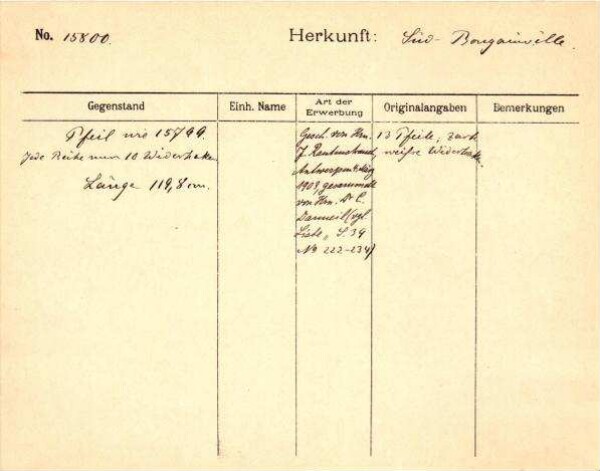 No. 15800. Herkunft: Süd-Bougainville.
Gegenstand
Einh. Name
Art der Erwerbung
Originalangaben
Bemerkungen
Pfeil wie 15799.
Jede Reihe nur 10 Widerhaken
Länge 119,8 cm.
Gesch. von Hrn.
J. Rautenstrauch,
Antwerpen
1909, gesammelt
von Hrn. Dr C.
(vgl.
Liste, S. 39
No 222-234)
13 Pfeile, zwölf
weisse Widerhaken